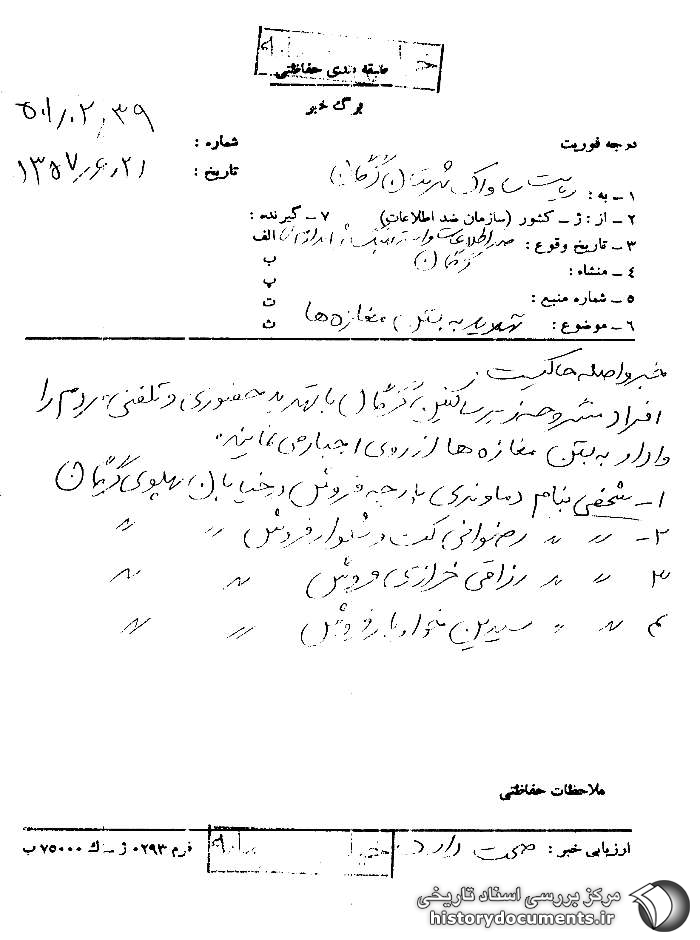 طبقه بندی حفاظتی
برگ خبر
۵۰۱/۰۲/۳۹
درجه فوریت
شماره :
تاریخ : ۱۳۵۷/۶/۲۱
۱ – به : ریاست ساواک شهرستان گرگان
۲ – از : ژ – کشور (سازمان ضد اطلاعات) ۷ – گیرنده :
۳ – تاریخ وقوع : الف
گرگان
ب
۴ – منشاء :
پ
۵ – شماره منبع :
ت
۶ – موضوع : تهدید به بستن مغازه ها
ث
خبر واصله حاکیست .
افراد مشروحه زیر ساکنین گرگان با تهدید حضوری و تلفنی مردم را
وادار به بستن مغازه ها از روی اجبار می نمایند .
۱ – شخصی بنام دماوندی پارچه فروش در خیابان پهلوی گرگان
۲ – " " رضوانی کت و شلوار فروش " "
۳ " " رزاقی خرازی فروش " "
۴ " " سیدین خواربار فروش " "
ملاحظات حفاظتی
ارزیابی خبر : صحت دارد .
فرم ۰۲۹۳ ژ – ک ۷۵۰۰۰ ب
مرکز بررسی اسناد تاریخی
historydocuments.ir